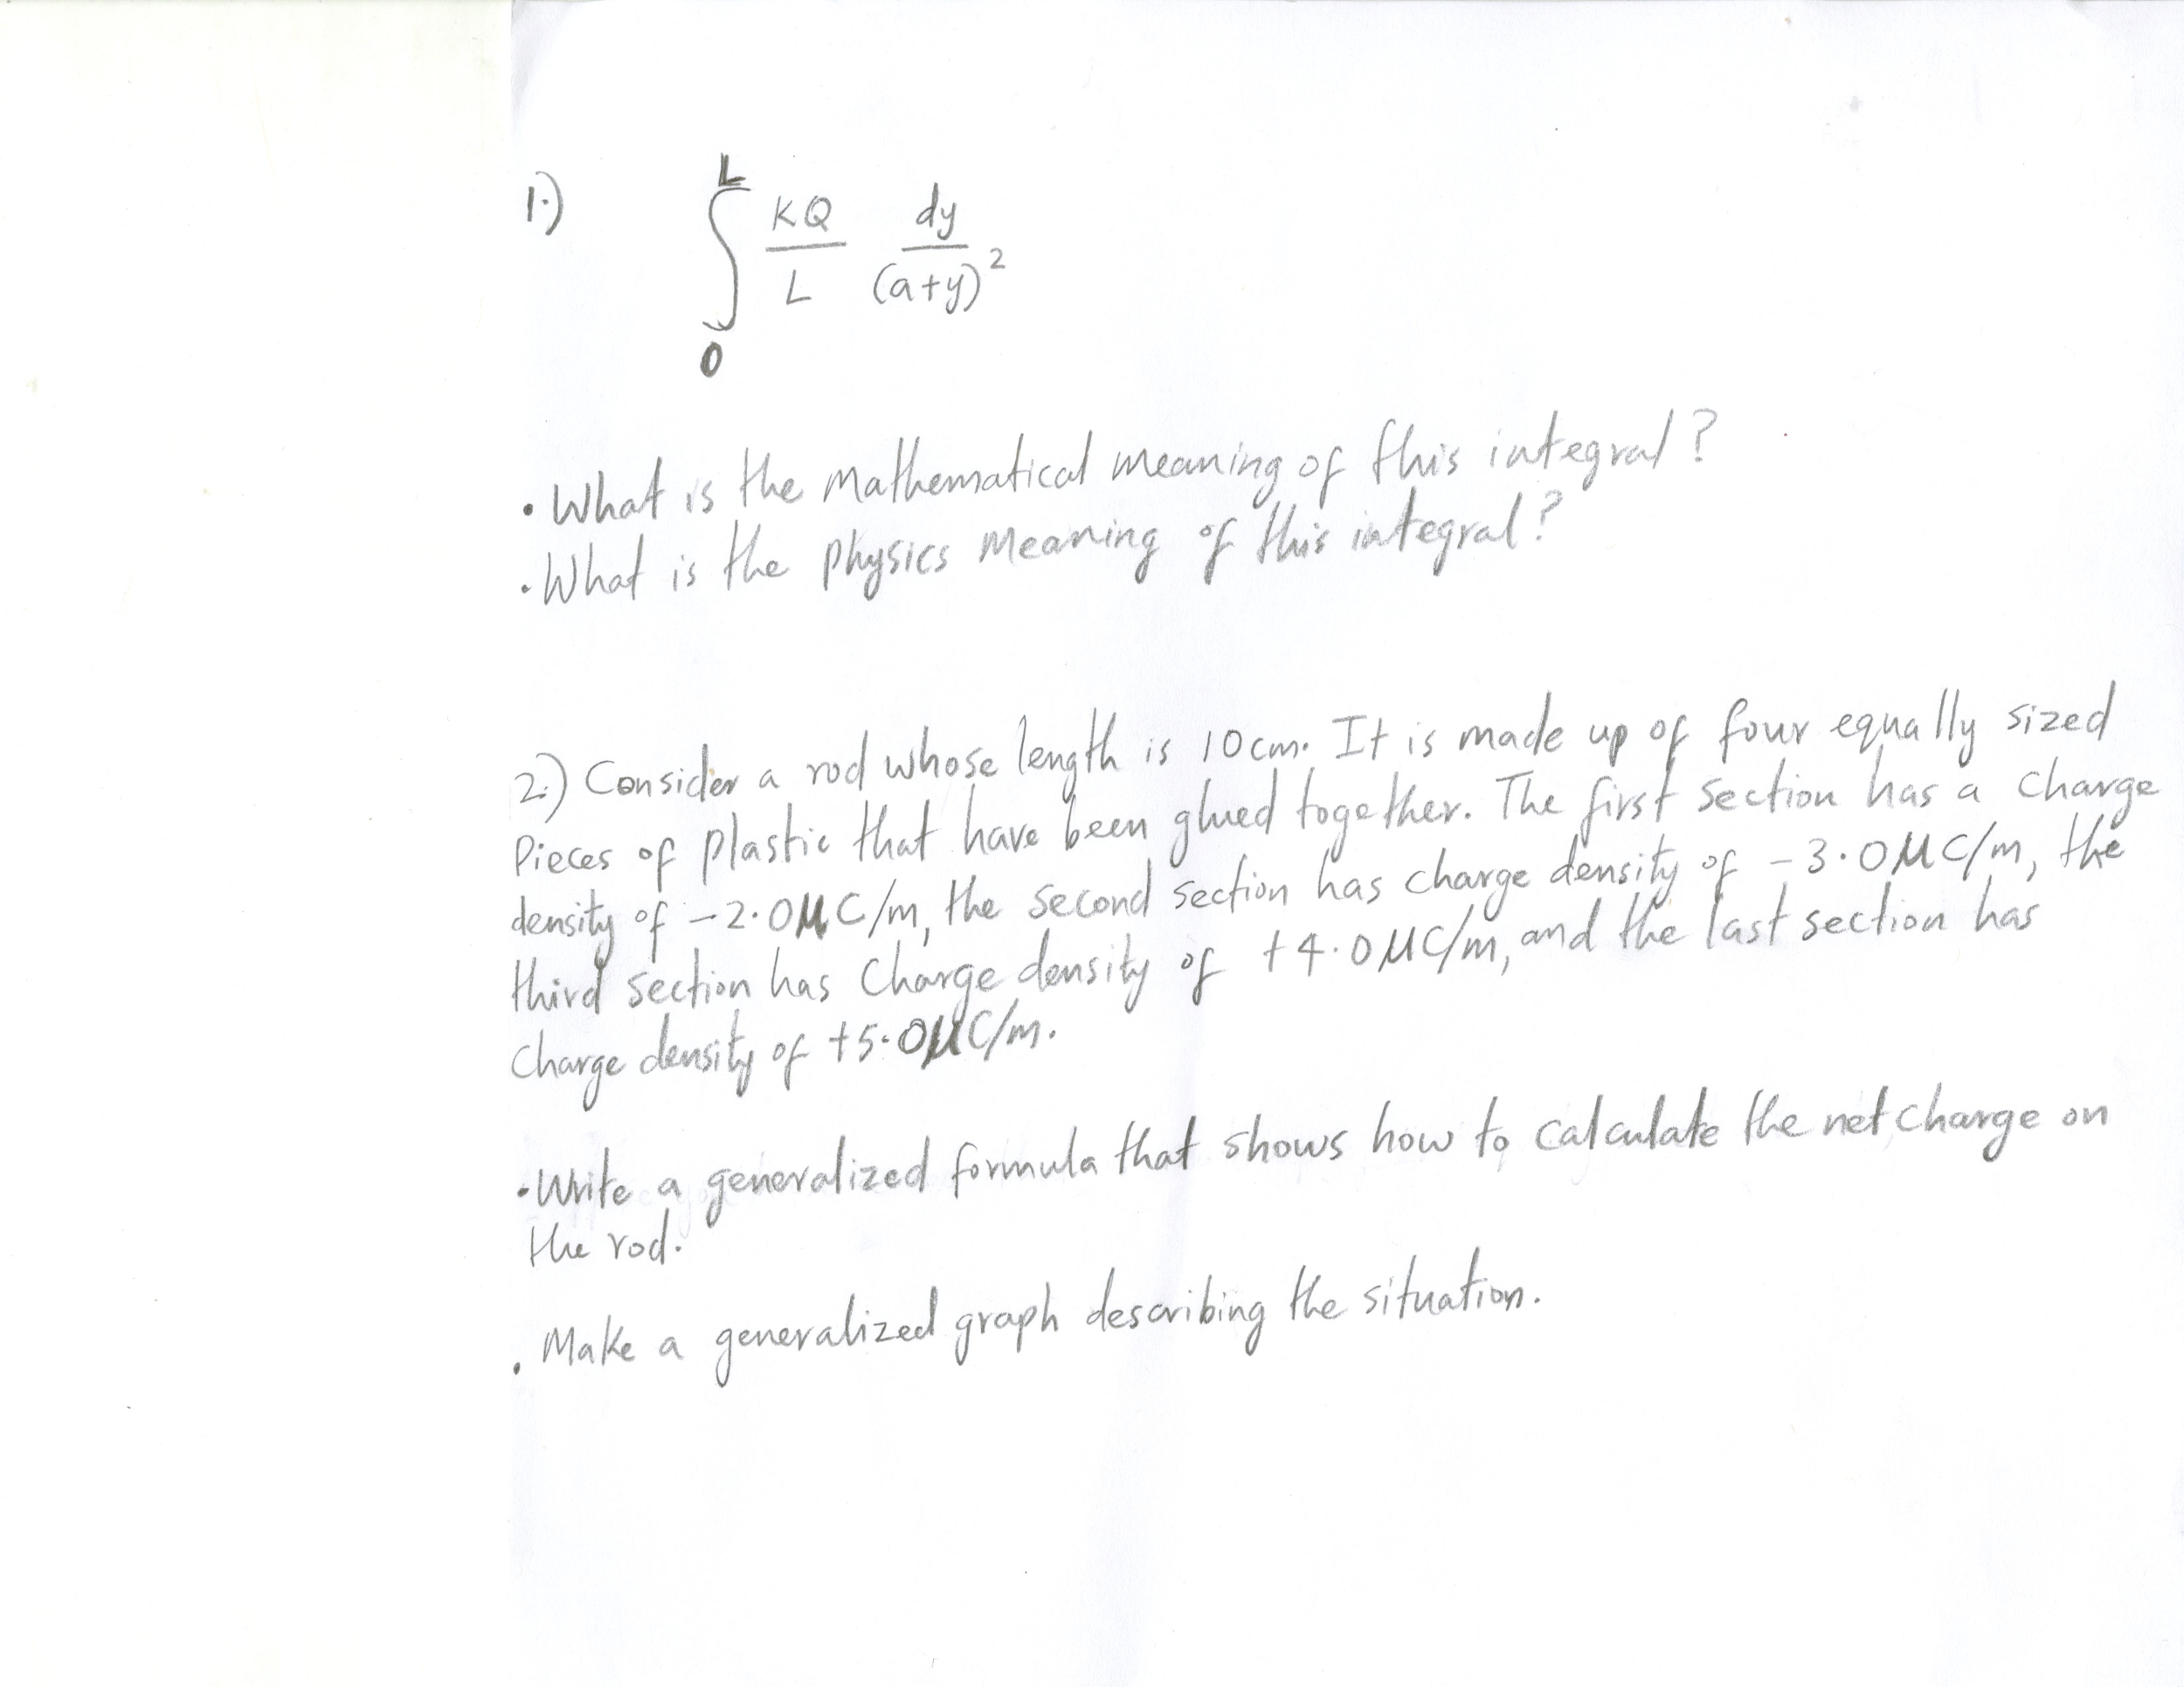 1.) ∫₀ᴸ KQ/L dy/(a+y)²
• What is the Mathematical meaning of this integral?
• What is the physics meaning of this integral?
2.) Consider a rod whose length is 10cm. It is made up of four equally sized
Pieces of plastic that have been glued together. The first section has a charge
density of -2.0μC/m, the second section has charge density of -3.0μC/m, the
third section has Charge density of +4.0μC/m, and the last section has
Charge density of +5.0μC/m.
• Write a generalized formula that shows how to calculate the net charge on
the rod.
• Make a generalized graph describing the situation.